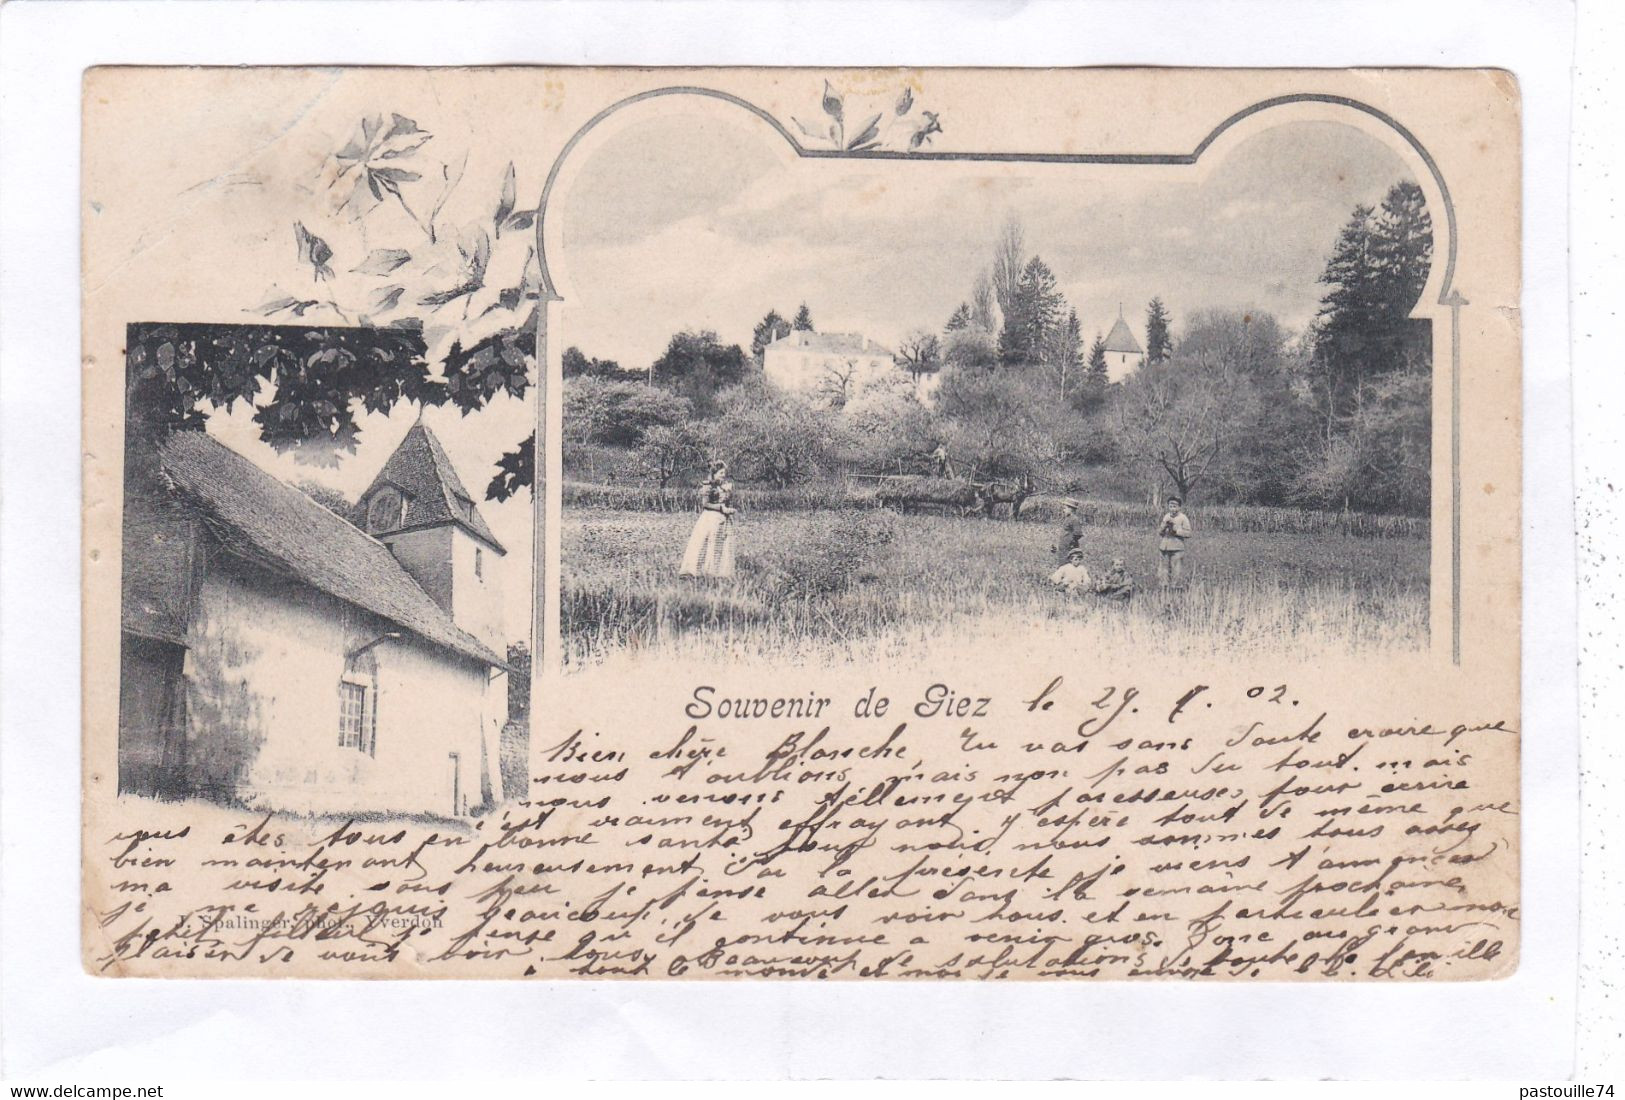 Souvenir de Giez le 29. 7. 02.
Bien chère Blanche, Tu vas sans doute croire que
nous t'oublions, mais non pas du tout. mais
nous venons tellement paresseuses pour écrire
c'est vraiment effrayant, j'espère tout de même que
vous êtes tous en bonne santé pour nous, nous sommes tous assez
bien maintenant heureusement, Par la présente je viens t'annoncer
ma visite sous peu, je pense aller dans la semaine prochaine,
je me réjouis beaucoup, de vous voir tous et en particulier mon
J. Spalinger, phot., Yverdon
petit filleul je pense qu'il continue a venir gros. Donc au grand
plaisir de vous voir tous, Beaucoup de salutations de toute la famille
a tout le monde et moi je vous envoie de
www.delcampe.net
pastouille74